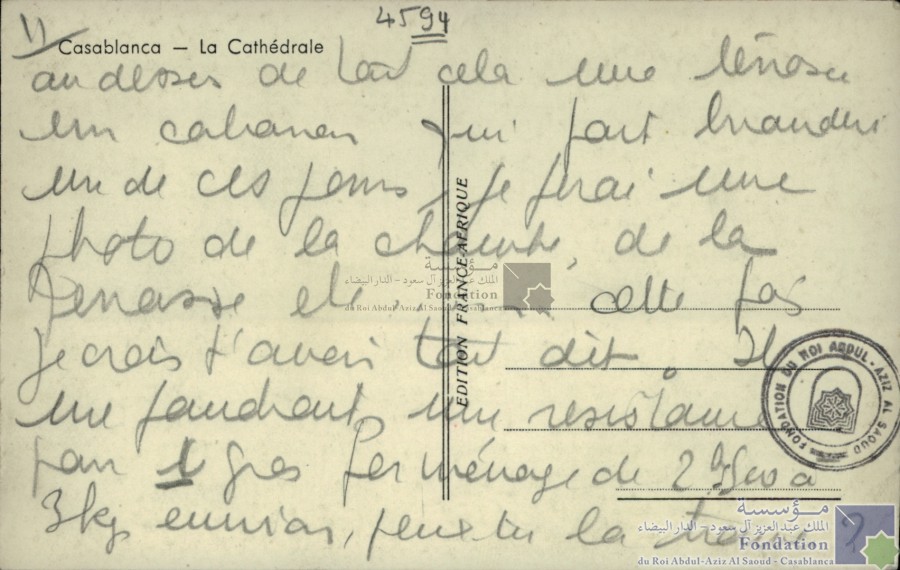 11
4594
Casablanca — La Cathédrale
au dessus de tout cela une terrasse
un cabanon qui fait buanderie
un de ces jours je ferai une
photo de la chambre, de la
Terrasse et. cette fois
je crois t'avoir tout dit. Il
me faudrait une resistance
pour 1 gros fer ménage de 2kg500 à
3kg environ, peux-tu la trouver ?
EDITION FRANCE-AFRIQUE
FONDATION DU ROI ABDUL-AZIZ AL SAOUD
مؤسسة
الملك عبد العزيز آل سعود - الدار البيضاء
Fondation
du Roi Abdul-Aziz Al Saoud - Casablanca
مؤسسة
الملك عبد العزيز آل سعود - الدار البيضاء
Fondation
du Roi Abdul-Aziz Al Saoud - Casablanca